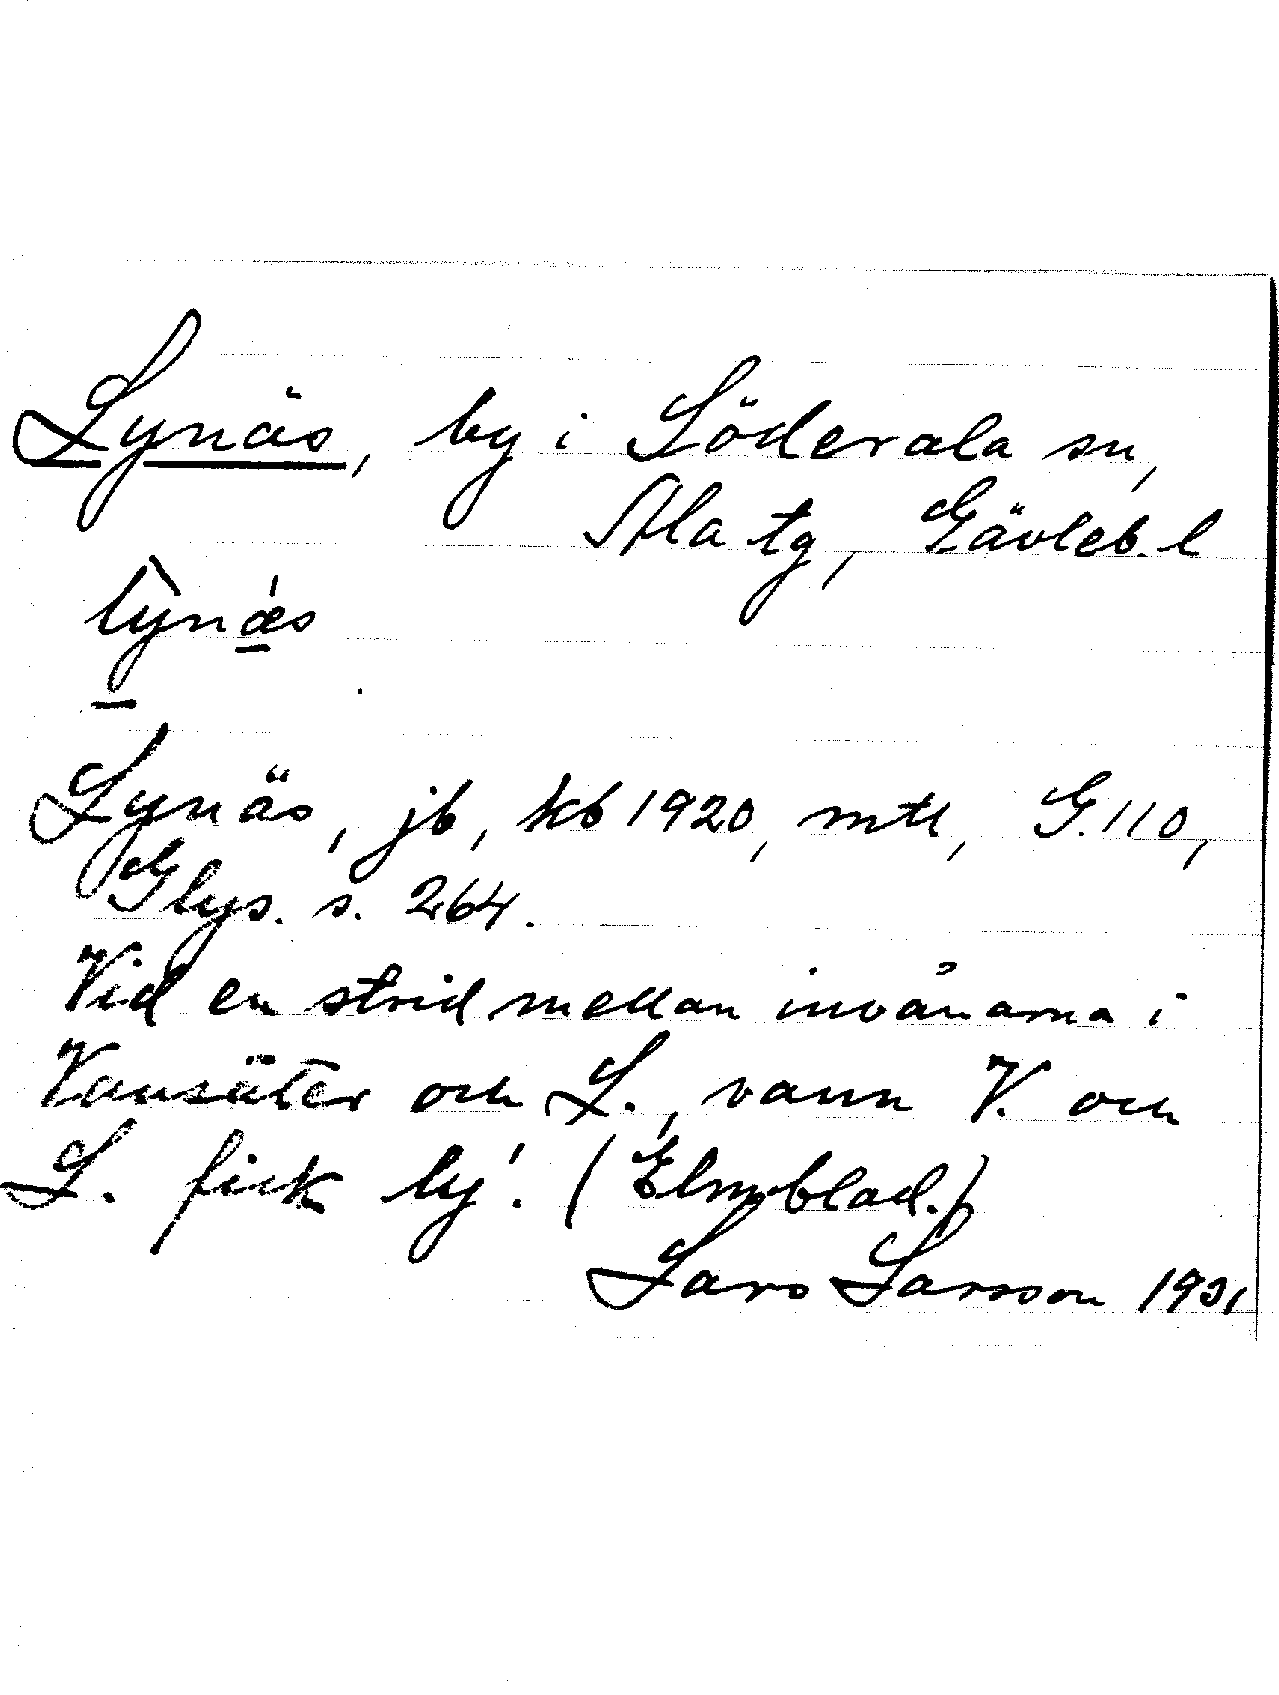 Lynäs, by i Söderala sn,
Ala tg, Gävleb. l
lynǽs
Lynäs, jb, kb 1920, mtl, G. 110,
Glys. s. 264.
Vid en strid mellan invånarna i
Vansäter och L., vann V. och
L. fick ly'. (Elmblad.)
Lars Larsson 1931